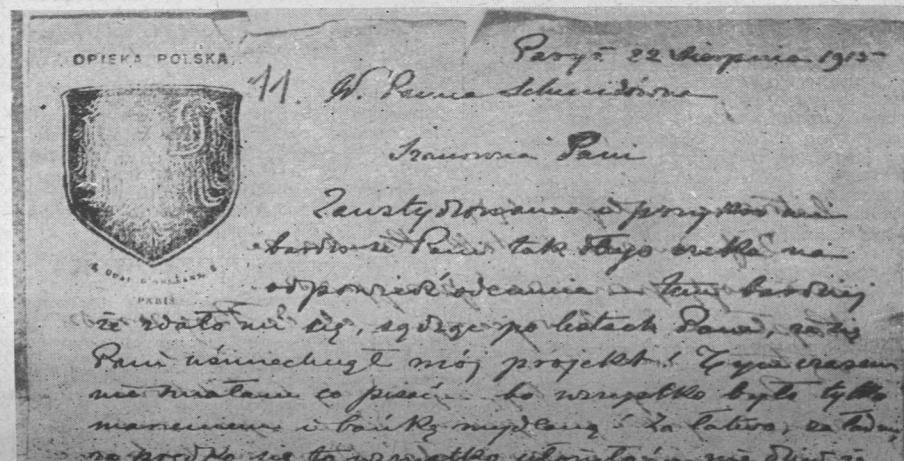 OPIEKA POLSKA
Paryż 22 Sierpnia 1915
11. W. Panna Schmidówna
Szanowna Pani
Zawstydzona i przykro mi
bardzo że Pani tak długo czeka na
odpowiedź odemnie – tem bardziej
że zdało mi się, sądząc po listach Pani, że się
Pani uśmiechnął mój projekt! Tymczasem
nie miałam co pisać – bo wszystko było tylko
marzeniem i bańką mydlaną! Za łatwo, za ładnie,
za prędko się to wszystko
PARIS